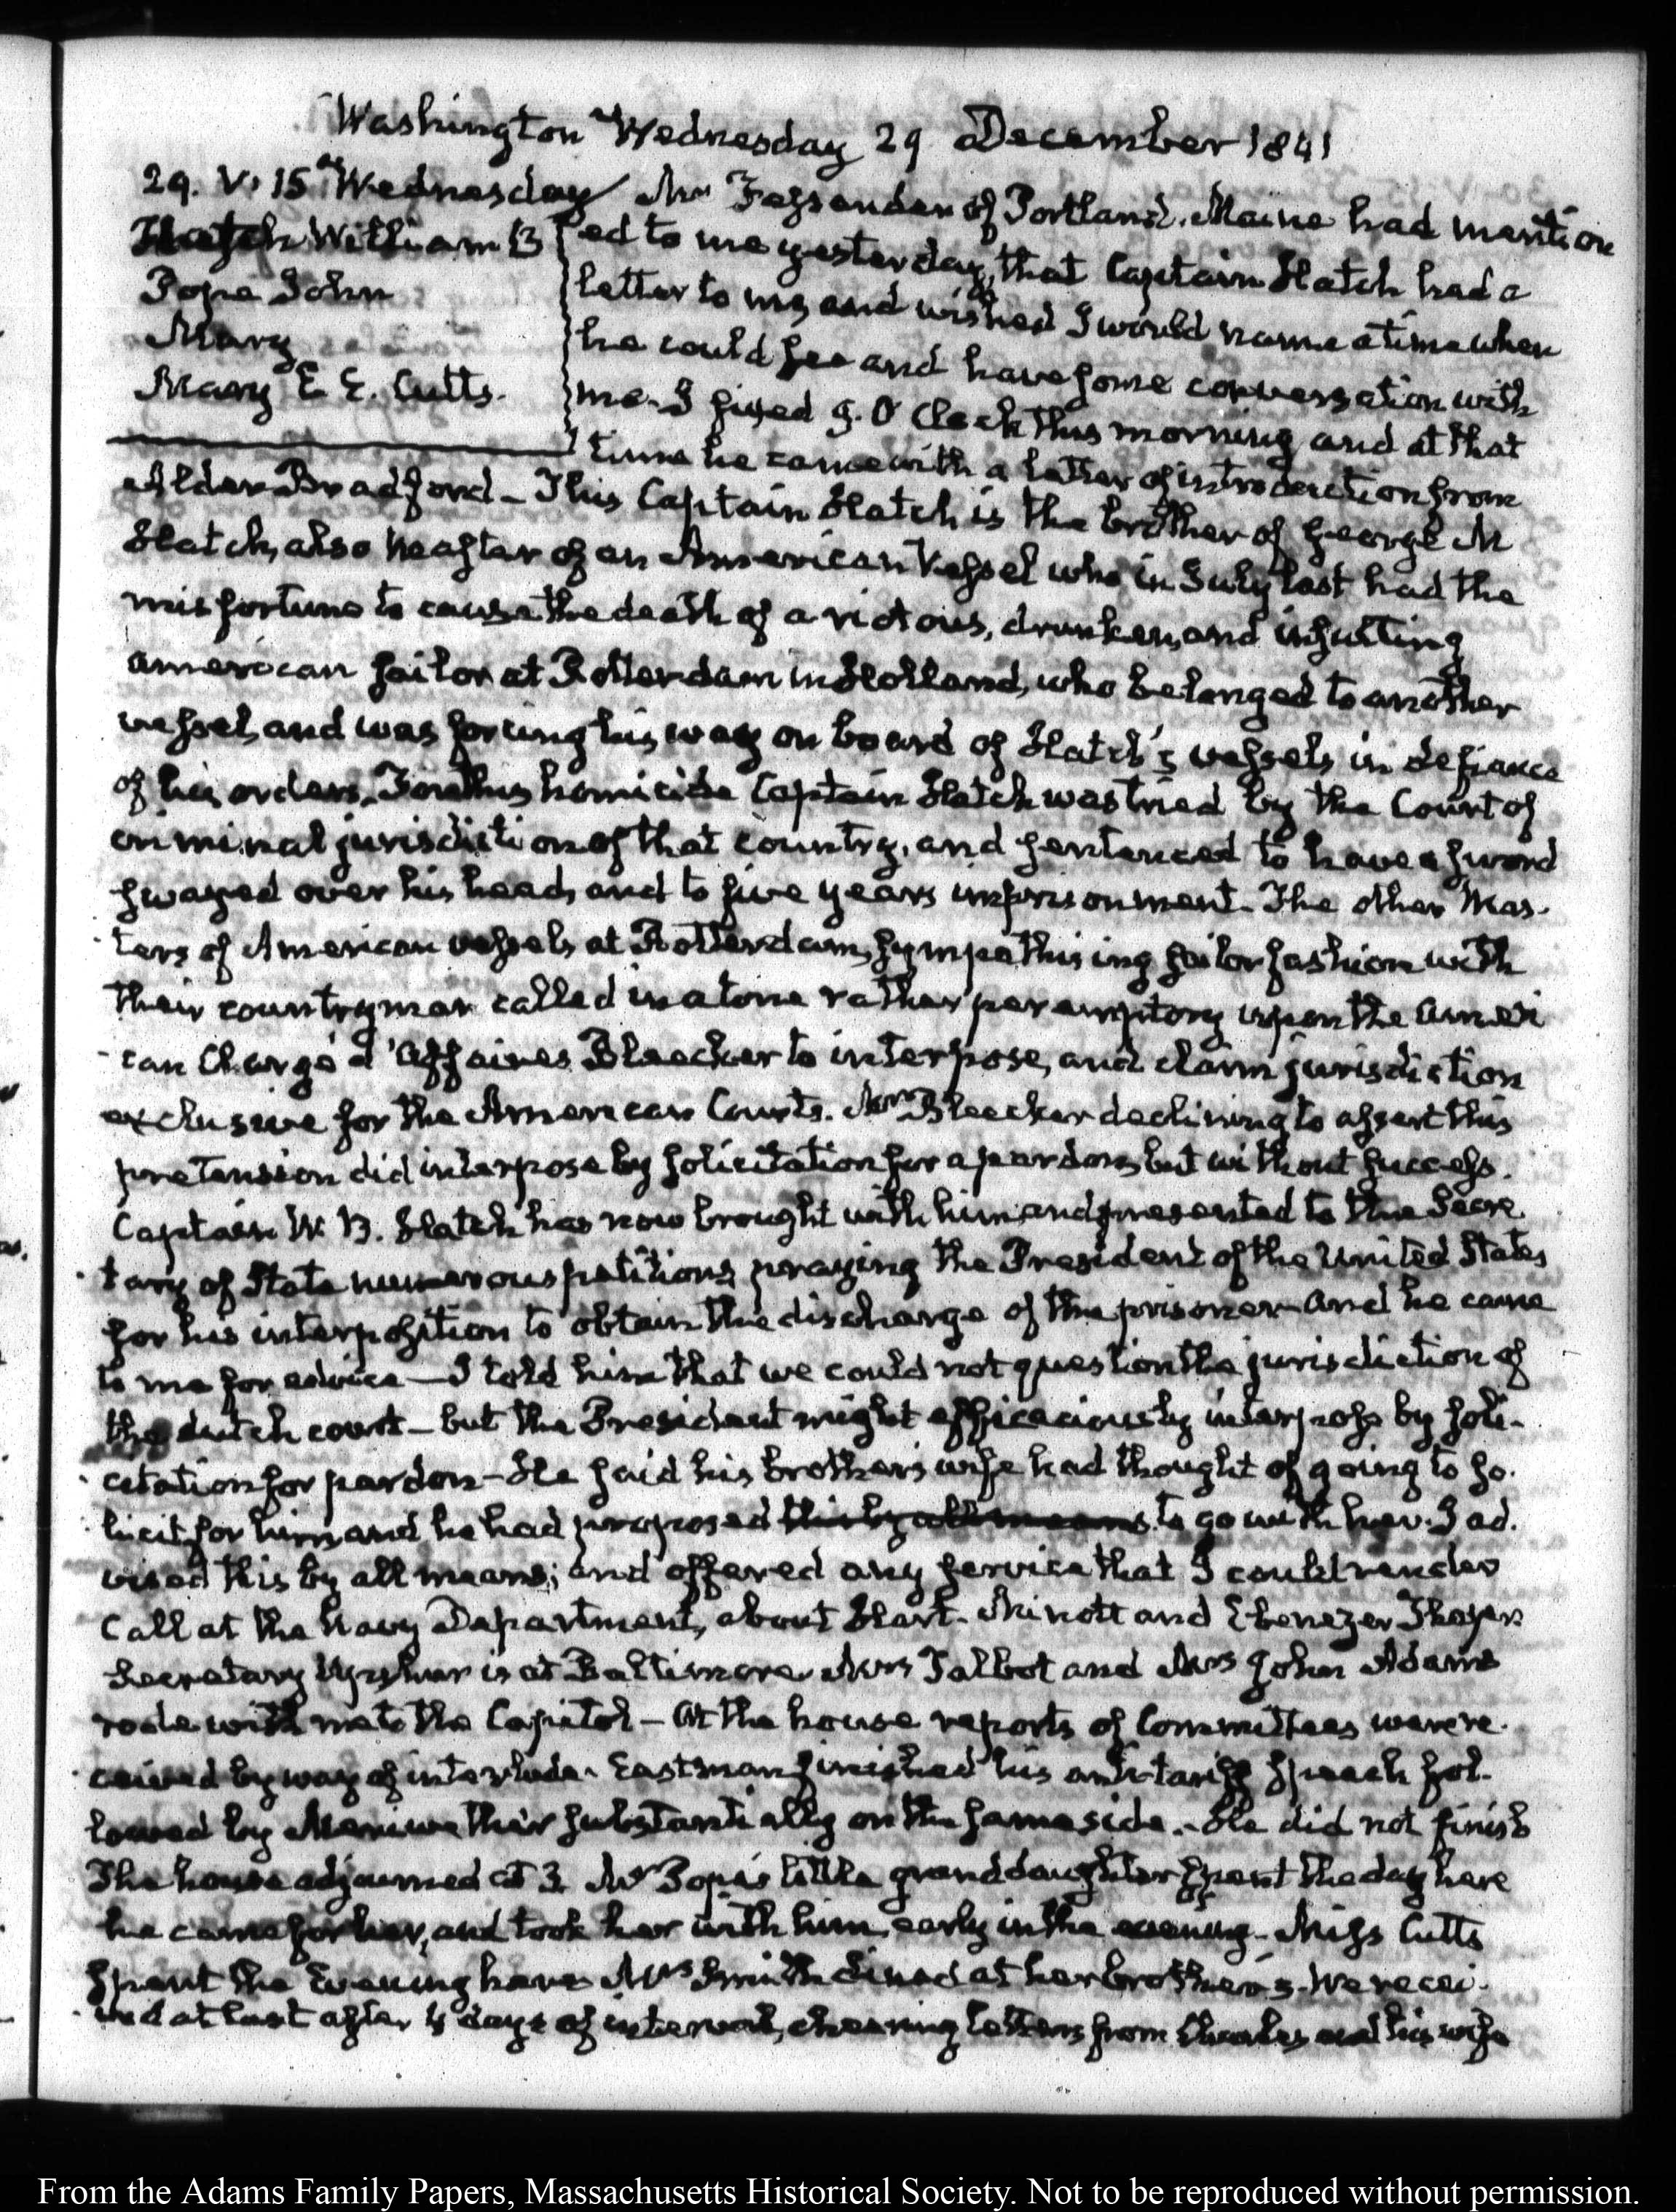 Washington Wednesday 29 December 1841
29. V. 15 Wednesday Mr Fessenden of Portland. Maine had mention
Hatch William B
Pope John
Mary
Mary E E. Cutts.
ed to me yesterday, that Captain Hatch had a
letter to me, and wished I would name a time when
he could see and have some conversation with
me. I fixed 9. O'Clock this morning and at that
time he came with a letter of introduction from
Alden Bradford – This Captain Hatch is the brother of George M
Hatch, also Master of an American Vessel who in July last had the
misfortune to cause the death of a riotous, drunken, and insulting
american sailor at Rotterdam in Holland, who belonged to another
vessel, and was forcing his way on board of Hatch's vessel, in defiance
of his orders. For this homicide Captain Hatch was tried by the Court of
criminal jurisdiction of that country, and sentenced to have a sword
swayed over his head, and to five years imprisonment. The other Mas-
ters of American vessels at Rotterdam, sympathising sailor fashion with
their countryman called in a tone rather peremptory upon the Ameri
can Chargé d'Affaires Bleecker to interpose, and claim jurisdiction
exclusive for the American Courts. Mr Bleecker declining to assert this
pretension did interpose by solicitation for a pardon, but without success.
Captain W. B. Hatch has now brought with him and presented to the Secre
tary of State numerous petitions praying the President of the United States
for his interposition to obtain the discharge of the prisoner – and he came
to me for advice – I told him that we could not question the jurisdiction of
the dutch court – but the President might efficaciously interpose by soli-
citation for pardon – He said his brother's wife had thought of going to so-
licit for him and he had proposed this by all means to go with her. I ad-
vised this by all means; and offered any service that I could render
Call at the Navy Department, about Hart. Minott and Ebenezer Thayer
Secretary Upshur is at Baltimore. Mrs Talbot and Mrs John Adams
rode with me to the Capitol – At the house reports of Committees were re-
ceived by way of interlude. Eastman finished his anti-tariff speech fol-
lowed by Meriwether substantially on the same side. – He did not finish
The house adjourned at 3. Mr Pope's little granddaughter spent the day here
he came for her, and took her with him, early in the evening – Miss Cutts
spent the Evening here. Mrs Smith dined at her brother's. We recei-
ved at last after 4 days of interval, cheering letters from Charles and his wife
From the Adams Family Papers, Massachusetts Historical Society. Not to be reproduced without permission.